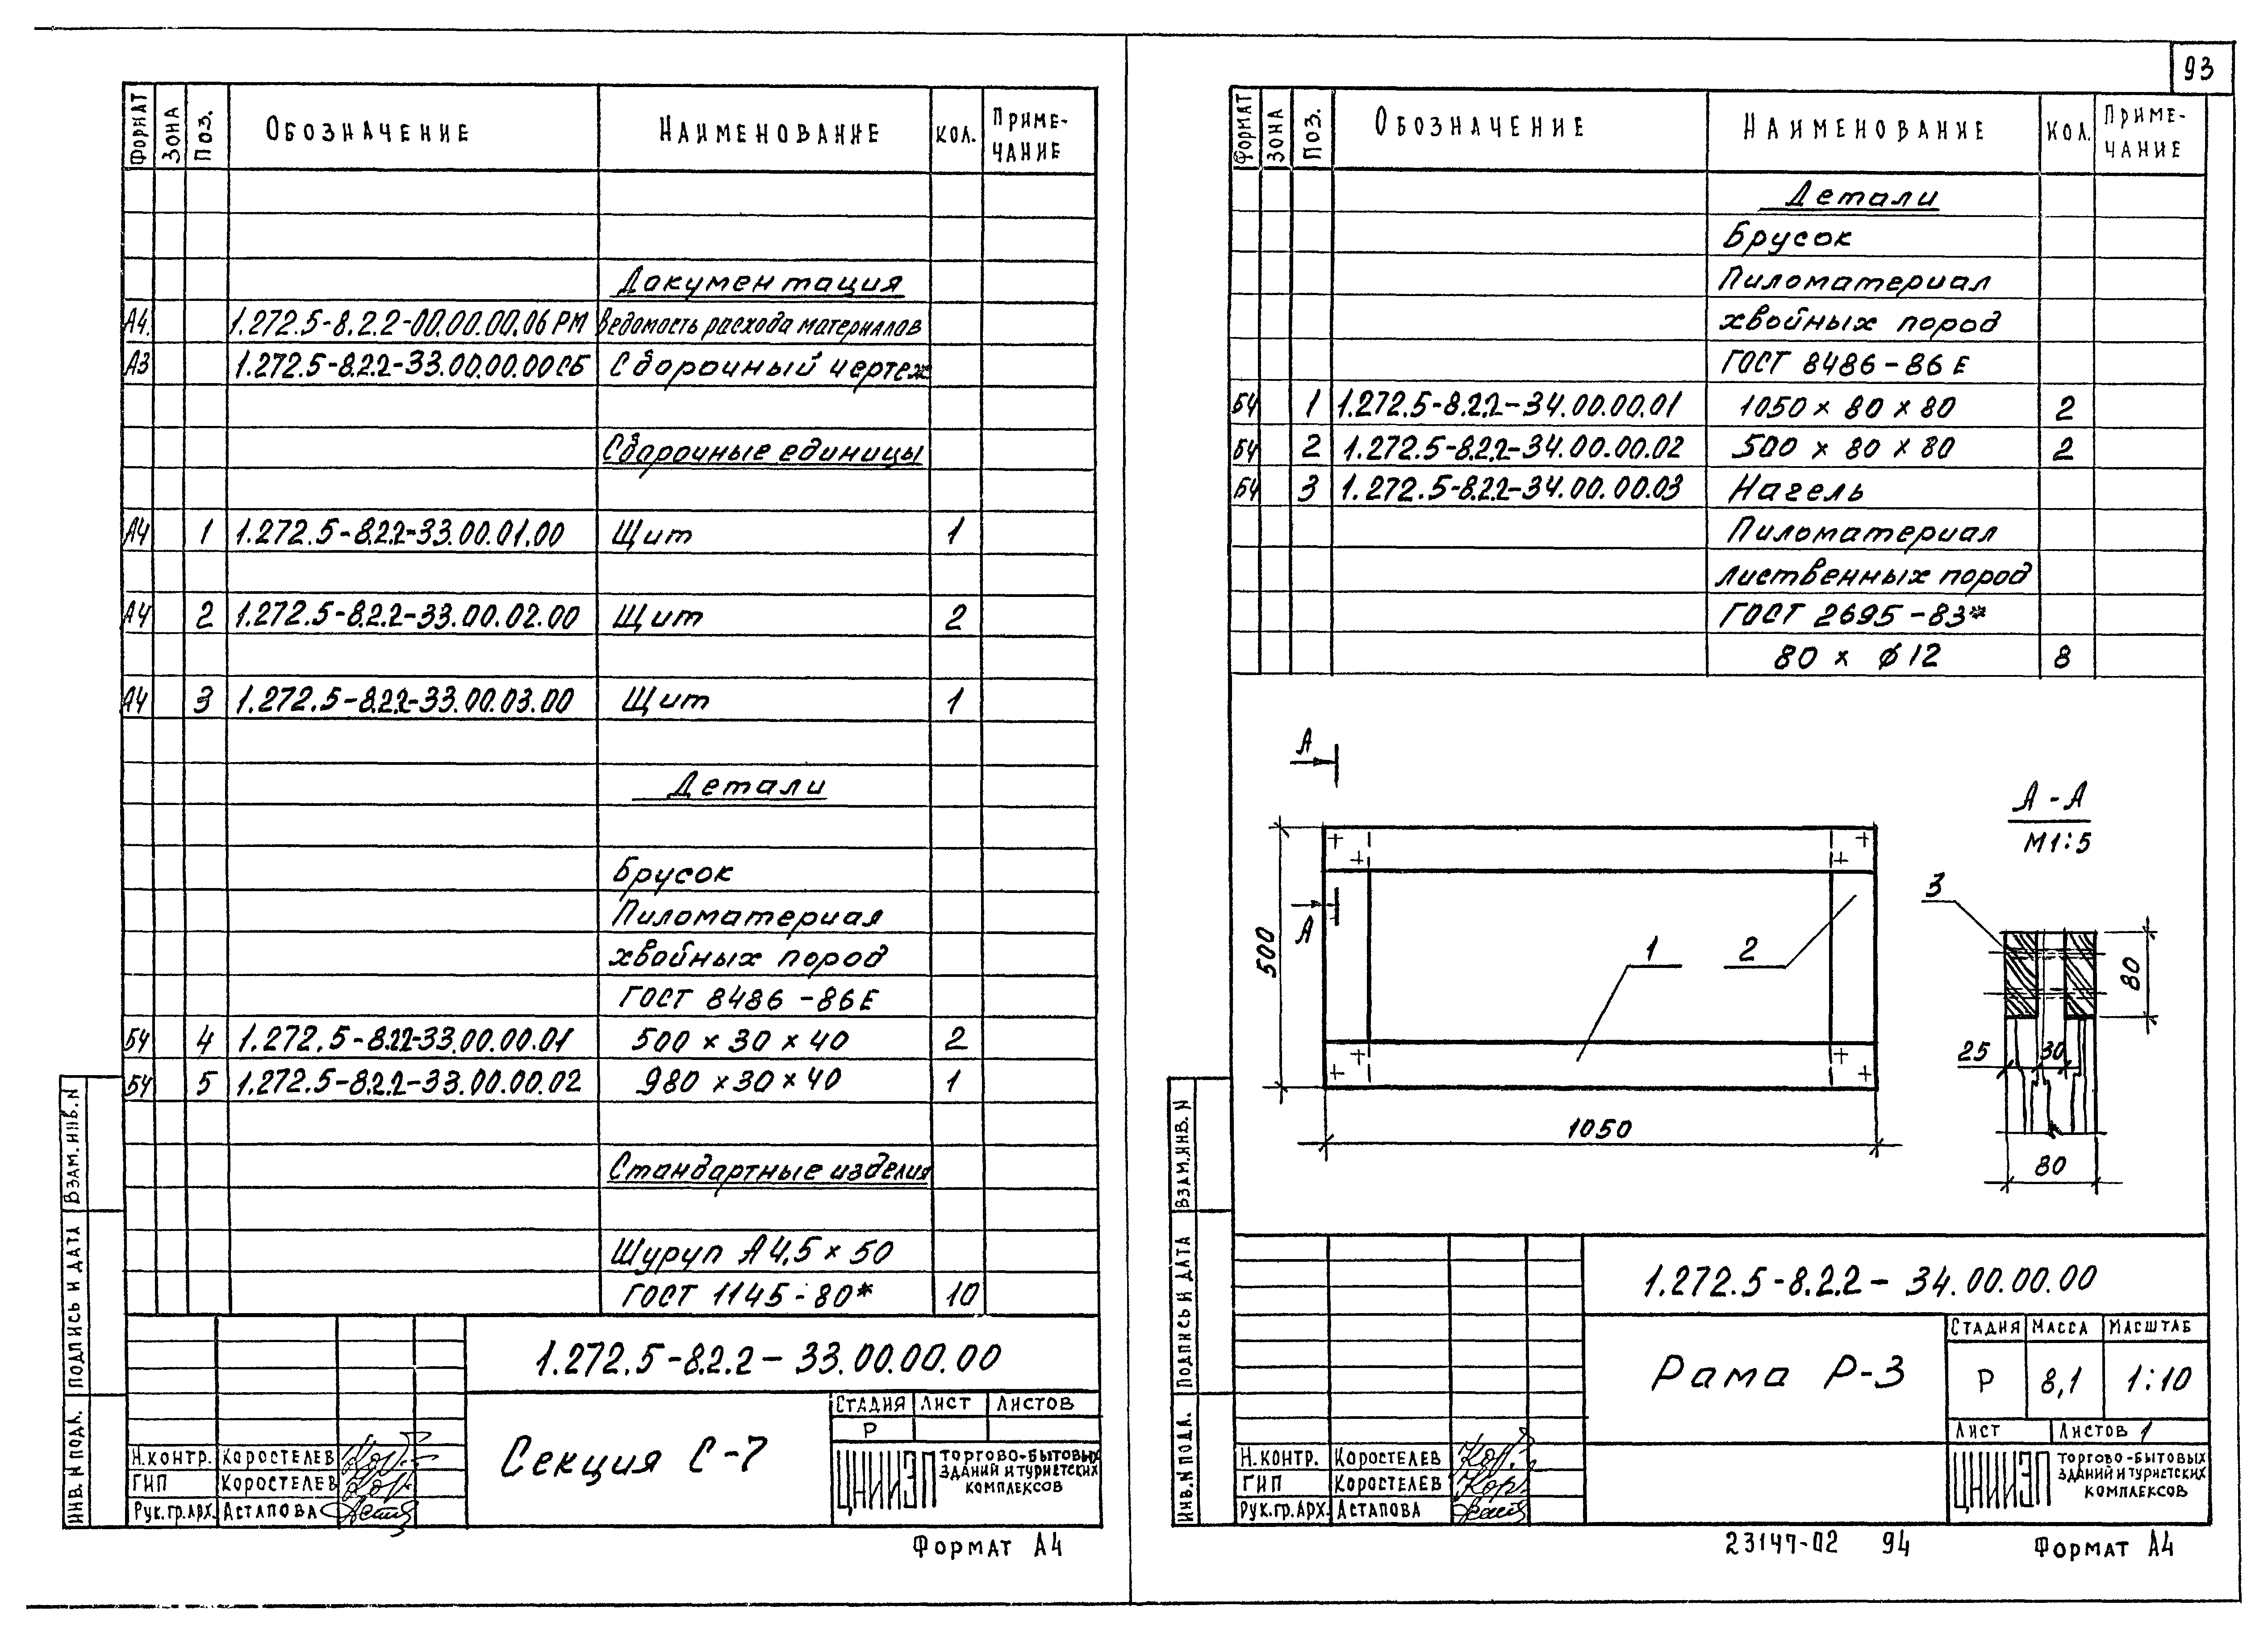 93
ФОРМАТ ЗОНА ПОЗ. ОБОЗНАЧЕНИЕ НАИМЕНОВАНИЕ КОЛ. ПРИМЕ-
ЧАНИЕ
Документация
А4 1.272.5-8.2.2-00.00.00.06 РМ Ведомость расхода материалов
А3 1.272.5-8.2.2-33.00.00.00 СБ Сборочный чертеж
Сборочные единицы
А4 1 1.272.5-8.2.2-33.00.01.00 Щит 1
А4 2 1.272.5-8.2.2-33.00.02.00 Щит 2
А4 3 1.272.5-8.2.2-33.00.03.00 Щит 1
Детали
Брусок
Пиломатериал
хвойных пород
ГОСТ 8486-86Е
БЧ 4 1.272.5-8.2.2-33.00.00.01 500 × 30 × 40 2
БЧ 5 1.272.5-8.2.2-33.00.00.02 980 × 30 × 40 1
Стандартные изделия
Шуруп А4,5 × 50
ГОСТ 1145-80* 10
1.272.5-8.2.2-33.00.00.00
Секция С-7
СТАДИЯ ЛИСТ ЛИСТОВ
Р
Н.КОНТР. КОРОСТЕЛЕВ
ГИП КОРОСТЕЛЕВ
РУК.ГР.АРХ. АСТАПОВА
ЦНИИЭП ТОРГОВО-БЫТОВЫХ
ЗДАНИЙ И ТУРИСТСКИХ
КОМПЛЕКСОВ
ИНВ.N ПОДЛ. ПОДПИСЬ И ДАТА ВЗАМ.ИНВ.N
ФОРМАТ А4
ФОРМАТ ЗОНА ПОЗ. ОБОЗНАЧЕНИЕ НАИМЕНОВАНИЕ КОЛ. ПРИМЕ-
ЧАНИЕ
Детали
Брусок
Пиломатериал
хвойных пород
ГОСТ 8486-86 Е
БЧ 1 1.272.5-8.2.2-34.00.00.01 1050 × 80 × 80 2
БЧ 2 1.272.5-8.2.2-34.00.00.02 500 × 80 × 80 2
БЧ 3 1.272.5-8.2.2-34.00.00.03 Нагель
Пиломатериал
лиственных пород
ГОСТ 2695-83*
80 × ø12 8
А
А
А-А
М1:5
3
1
2
500
1050
80
25
30
80
1.272.5-8.2.2-34.00.00.00
Рама Р-3
СТАДИЯ МАССА МАСШТАБ
Р 8,1 1:10
ЛИСТ ЛИСТОВ 1
Н.КОНТР. КОРОСТЕЛЕВ
ГИП КОРОСТЕЛЕВ
РУК.ГР.АРХ. АСТАПОВА
ЦНИИЭП ТОРГОВО-БЫТОВЫХ
ЗДАНИЙ И ТУРИСТСКИХ
КОМПЛЕКСОВ
ИНВ.N ПОДЛ. ПОДПИСЬ И ДАТА ВЗАМ.ИНВ.N
23147-02 94 ФОРМАТ А4